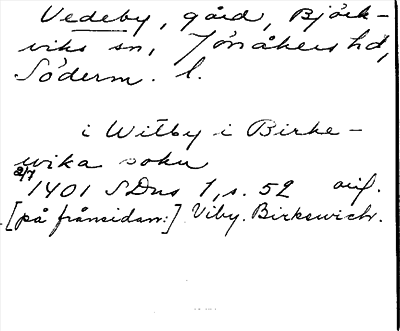 Vedeby, gård, Björk-
viks sn, Jönåkers hd,
Söderm. l.
i Witby i Birke-
wika sokn
2/7 1401 SDns 1, s. 52 orig.
[på frånsidan:] Viby. Birkewich.